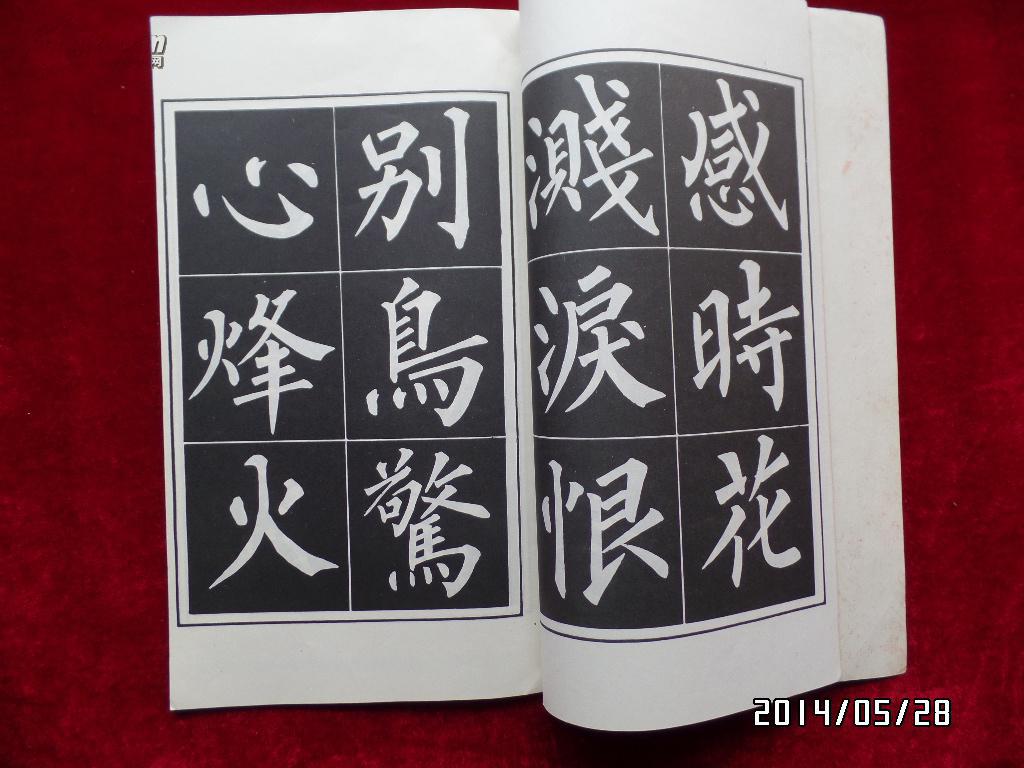 感時花
濺淚恨
别鳥驚
心烽火
2014/05/28
网